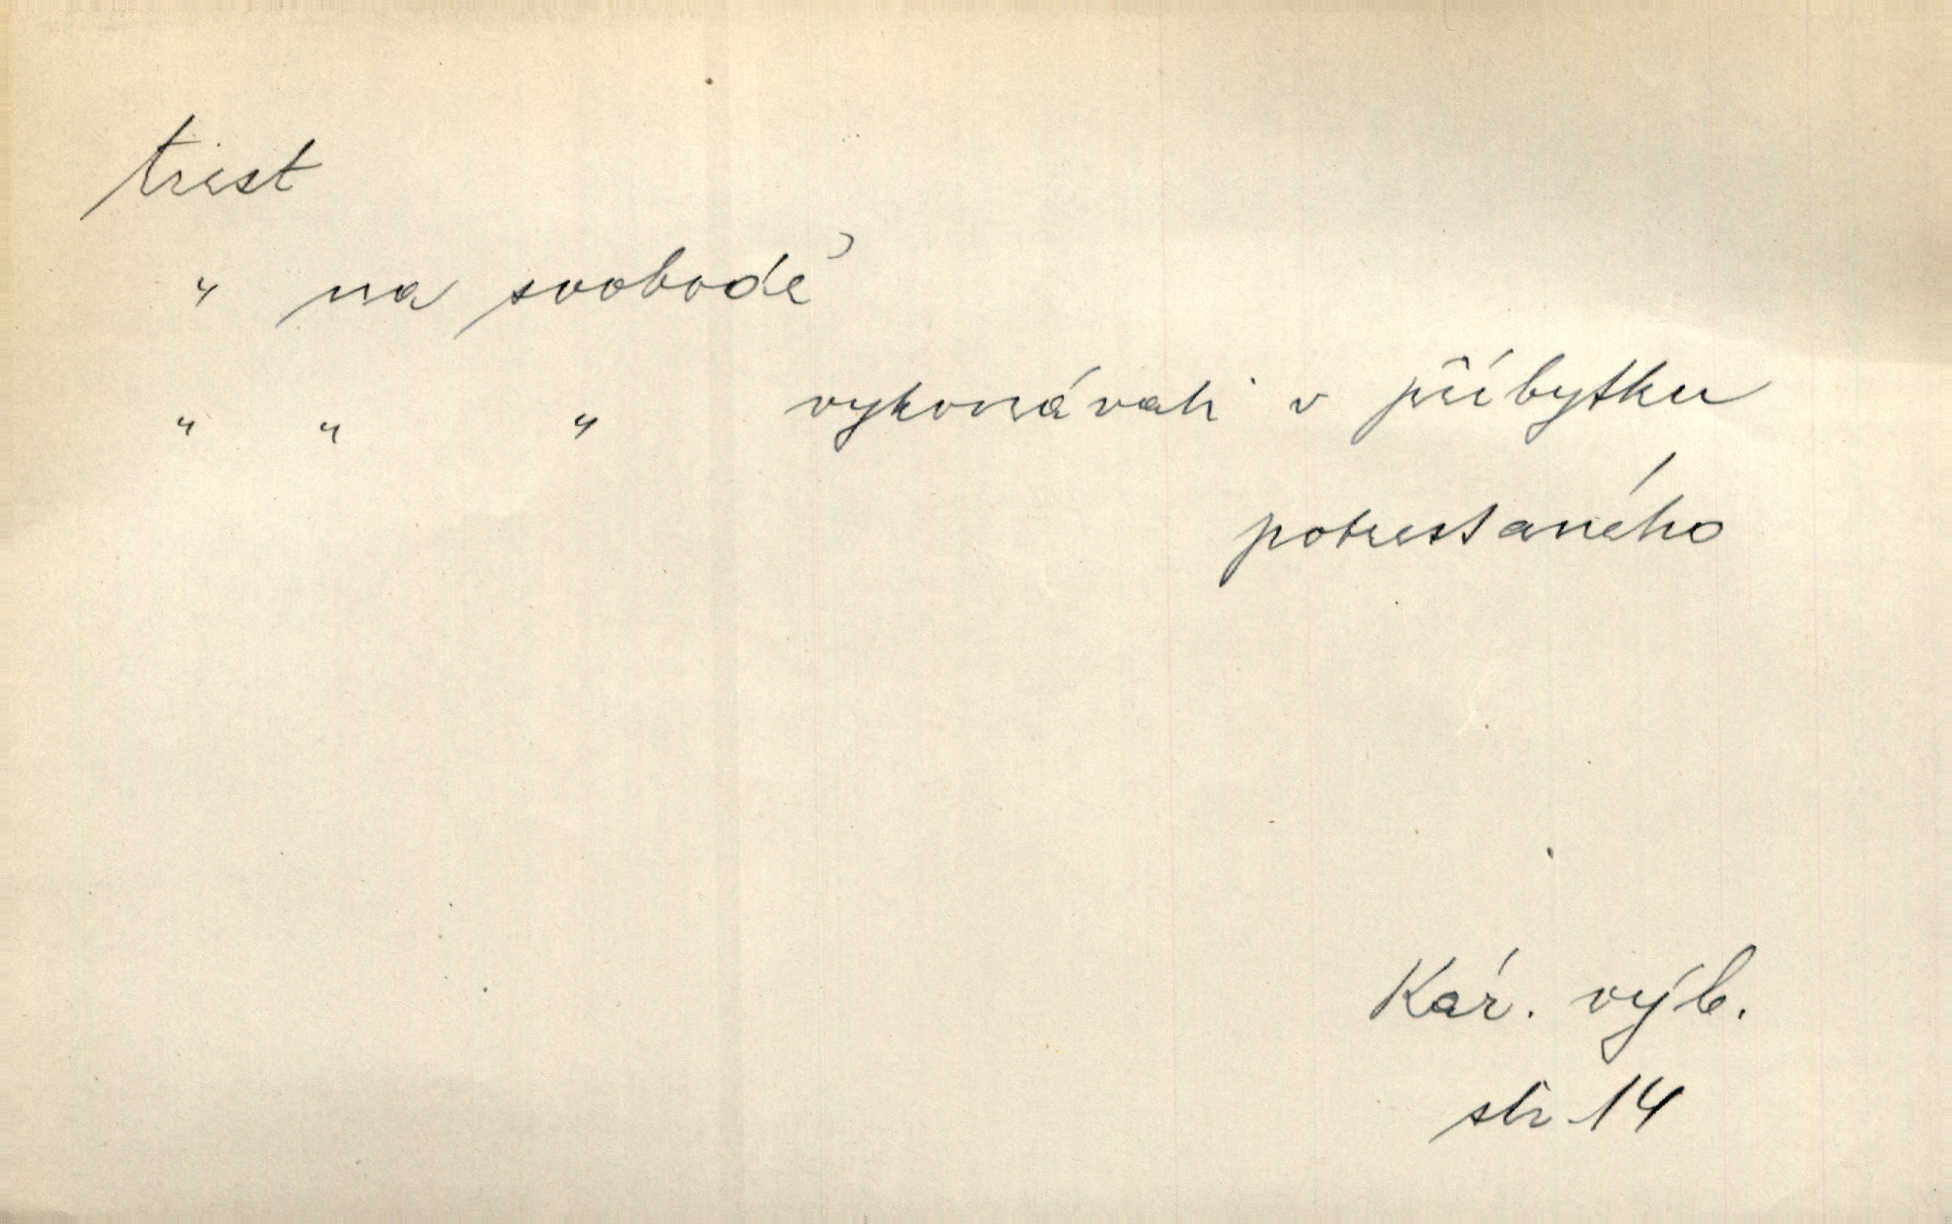 trest
" na svobodě
" " " vykonávati v příbytku
potrestaného
Kár. výb.
str 14